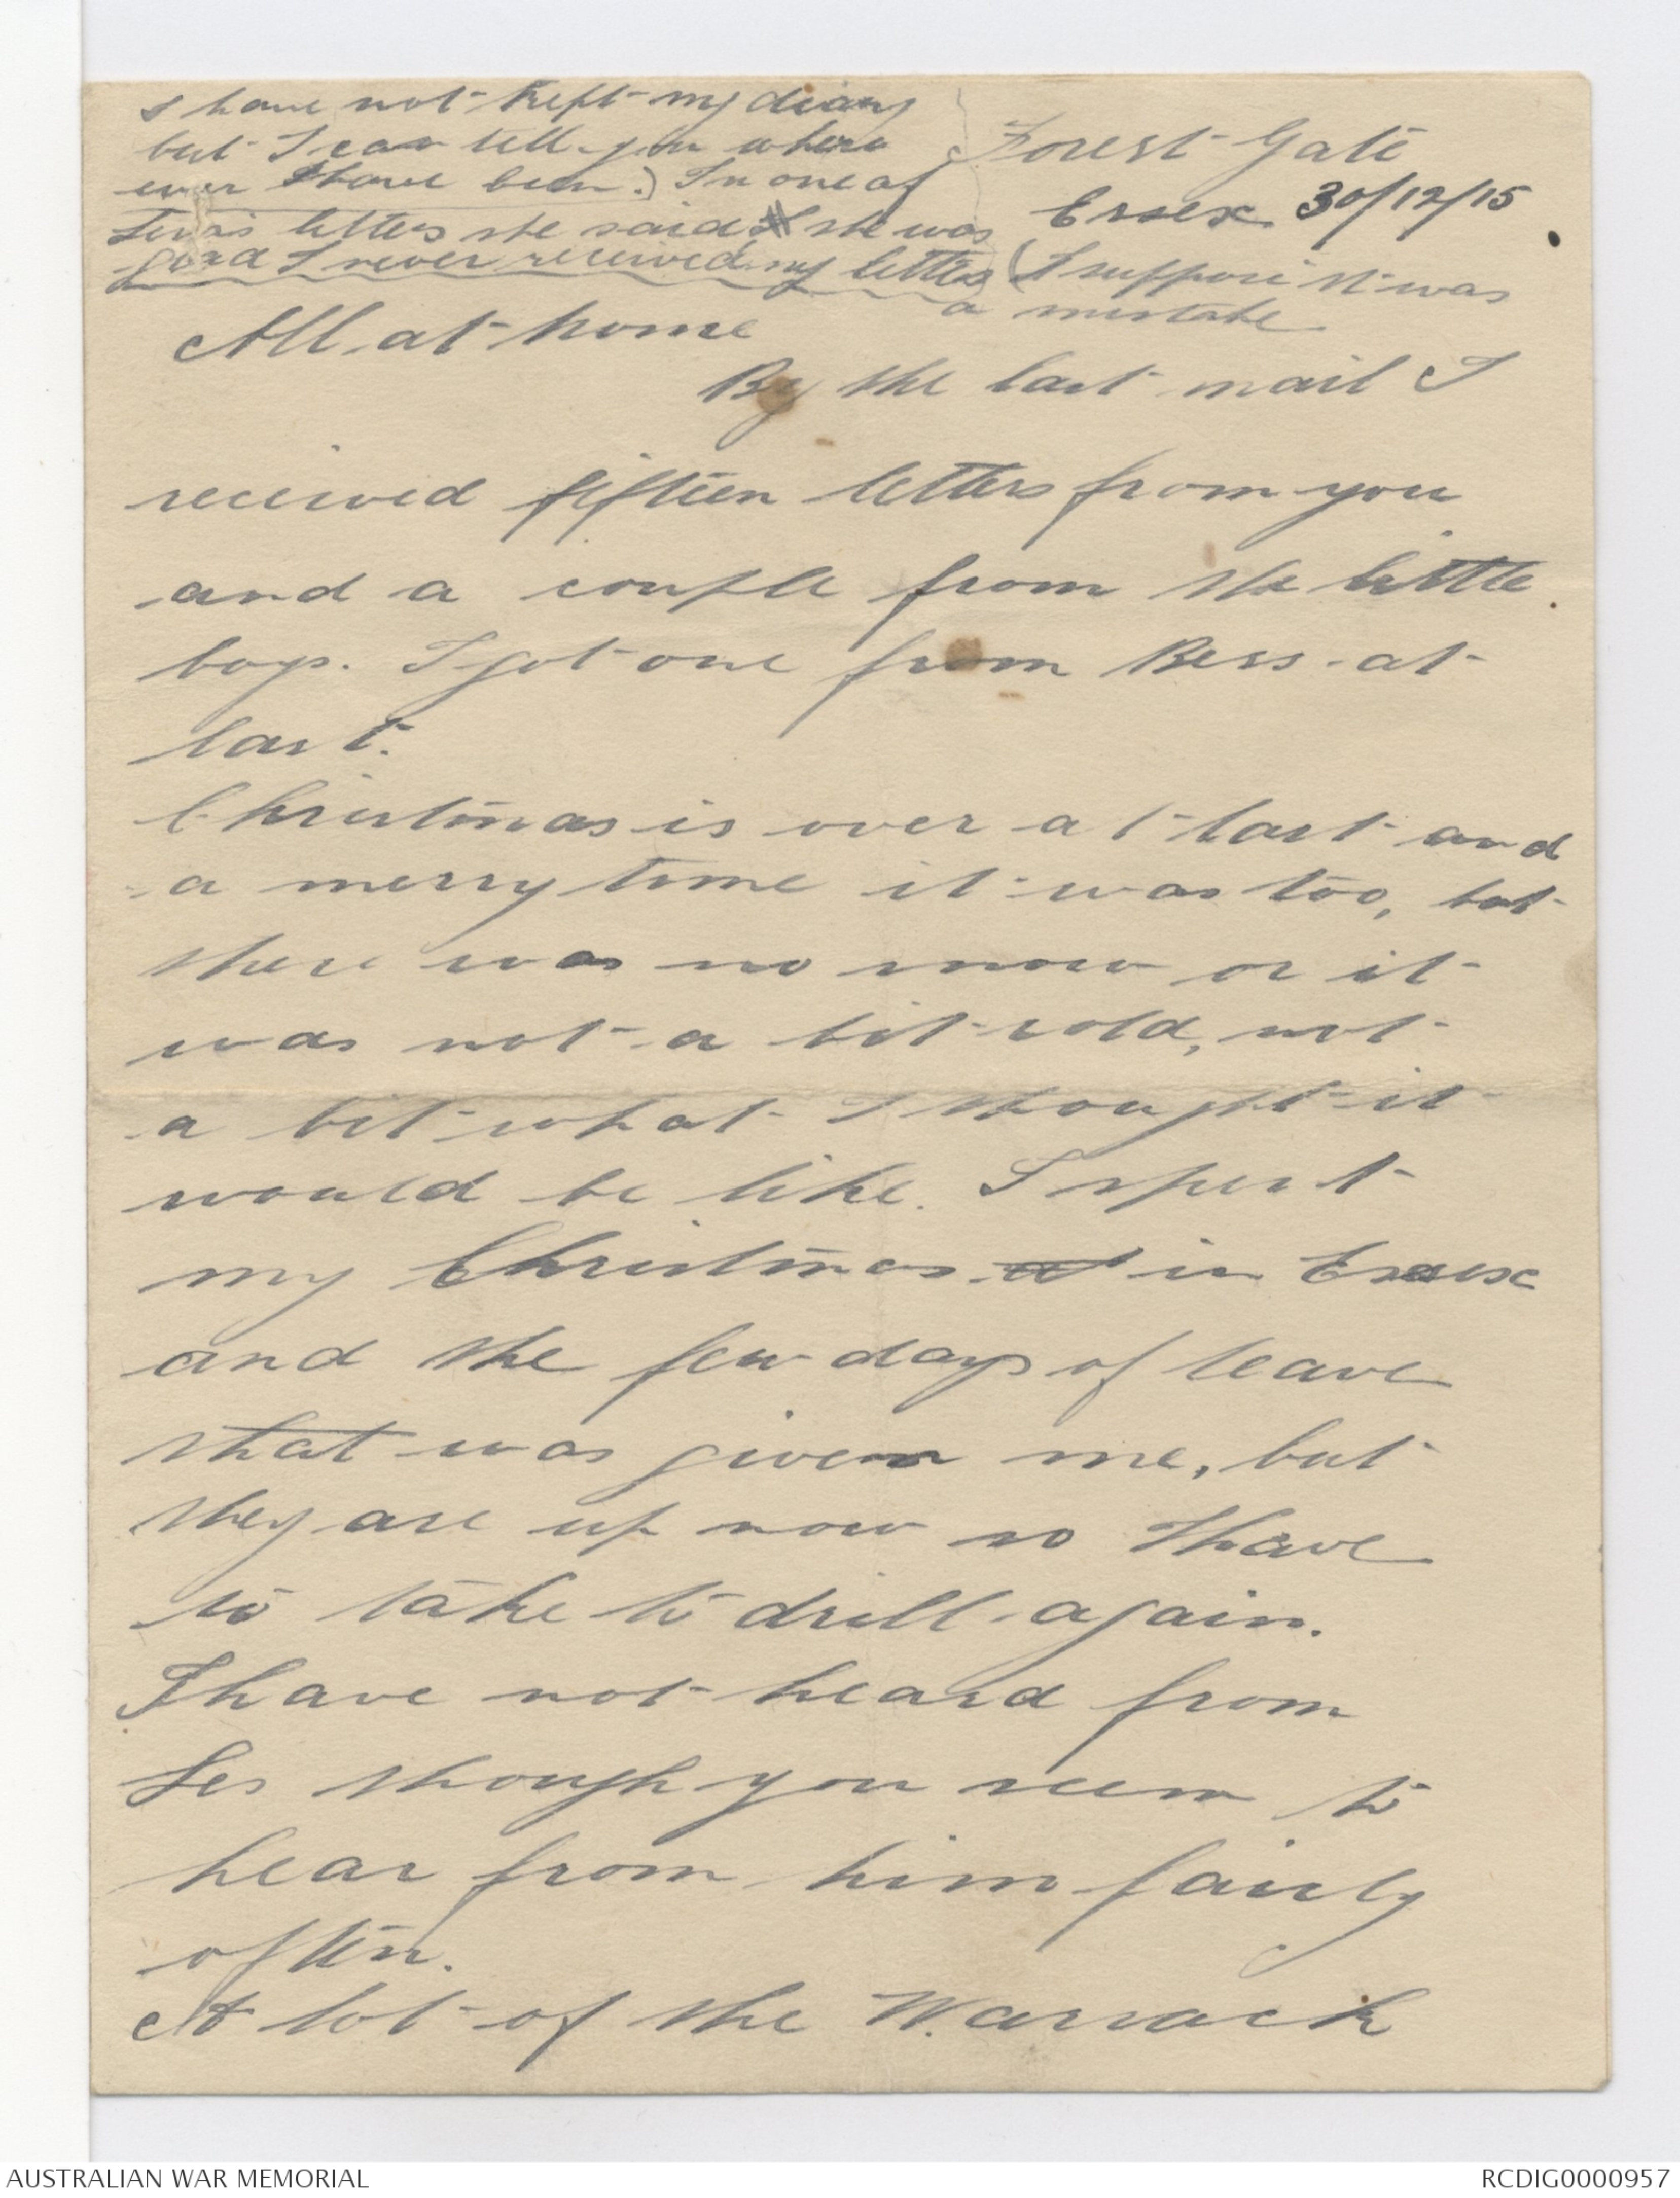 I have not kept my diary
but I can tell you where
ever I have been.) In one of
letters she said she was
glad I never received my letters (I suppose it was
a mistake
Forest Gate
Essex 30/12/15
All at home
By the last mail I
received fifteen letters from you
and a couple from the little
boys. I got one from Bess at
last.
Christmas is over at last and
a merry time it was too, but
there was no snow or it
was not a bit cold, not
a bit what I thought it
would be like. I spent
my Christmas at in Essex
and the few days of leave
that was given me, but
they are up now so I have
to take to drill again.
I have not heard from
Les though you seem to
hear from him fairly
often.
A lot of the Warrack
AUSTRALIAN WAR MEMORIAL
RCDIG0000957